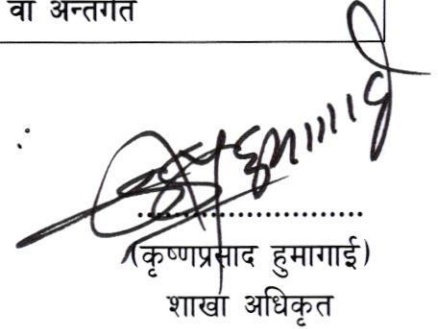 वा अन्तर्गत
......................
(कृष्णप्रसाद हुमागाई)
शाखा अधिकृत